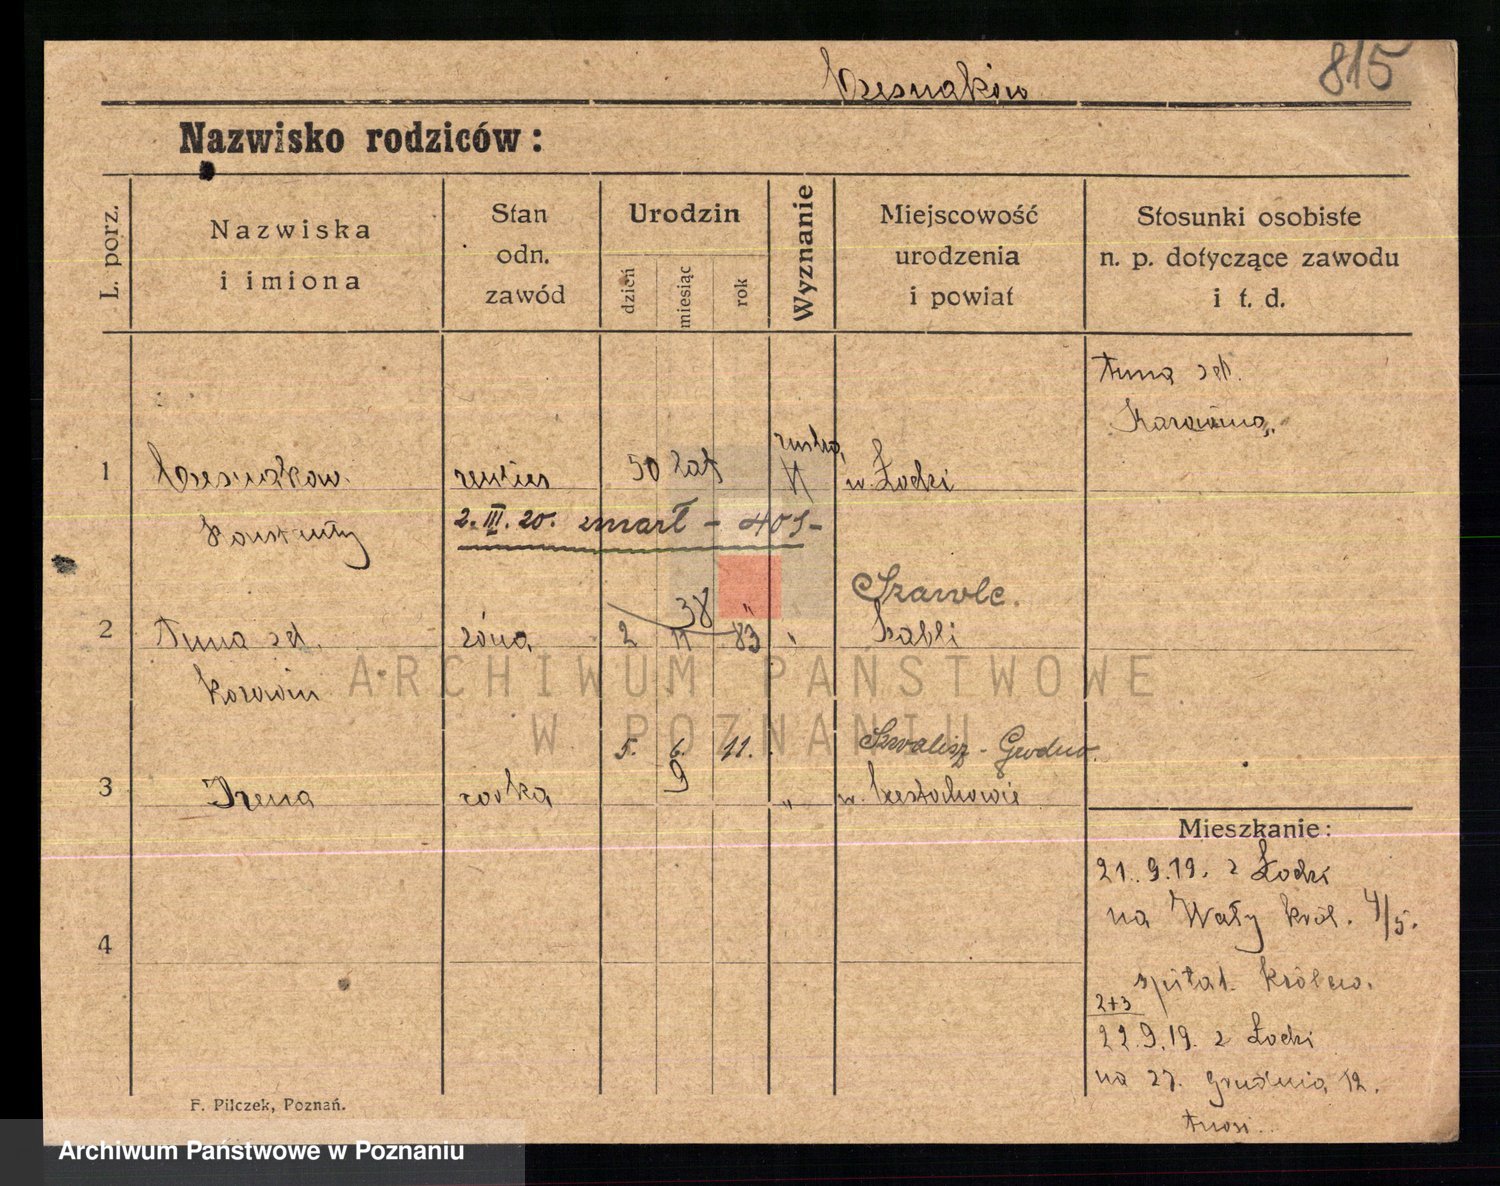 Czesnaków
815
Nazwisko rodziców:
L. porz.
Nazwiska
i imiona
Stan
odn.
zawód
Urodzin
dzień
miesiąc
rok
Wyznanie
Miejscowość
urodzenia
i powiat
Stosunki osobiste
n. p. dotyczące zawodu
i t. d.
Anna
1
rentier
50 lat
w. Łodzi
2. III. 20. zmarł - 401-
Szawle.
38 "
2
Anna
żona
2 11 83
"
5. 6. 11.
Grodno
9
3
Irena
córka
"
w. Czestochowie
Mieszkanie:
21. 9. 19. z Łodzi
na Wały król. 4/5.
4
szpital
2+3
22. 9. 19. z Łodzi
na 27. Grudnia 12.
F. Pilczek, Poznań.
ARCHIWUM PAŃSTWOWE
W POZNANIU
Archiwum Państwowe w Poznaniu